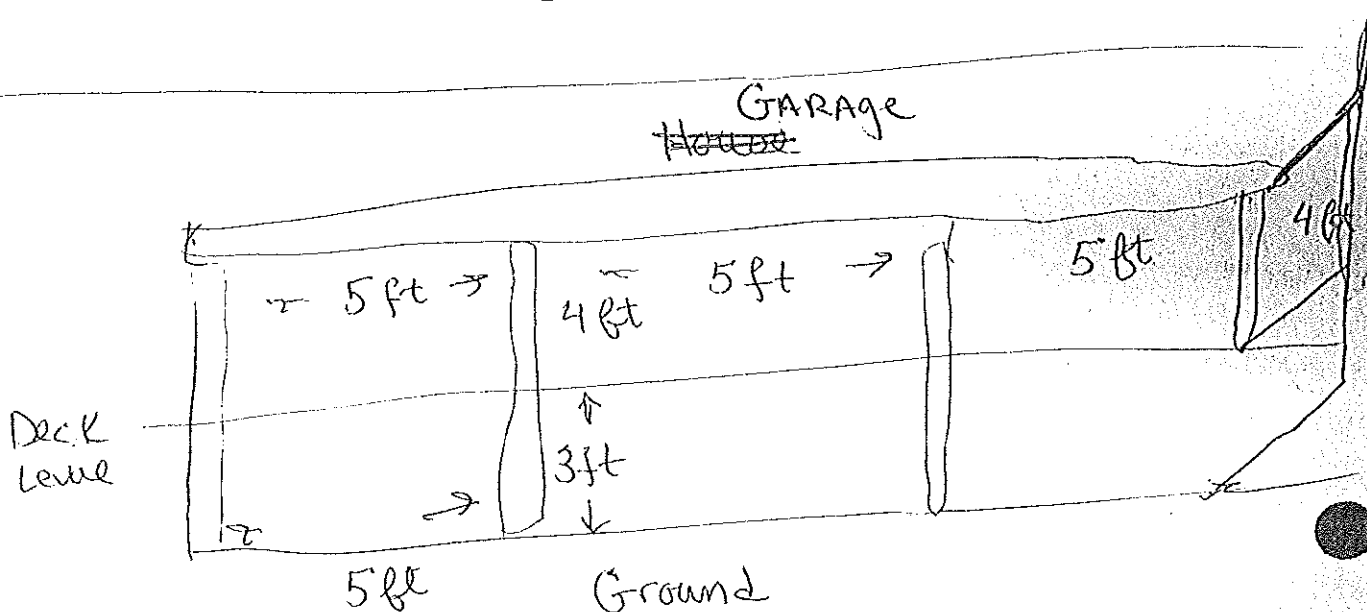 GARAGE
5 ft
5 ft
5 ft
4 ft
4 ft
Deck
Leve
3 ft
5 ft
Ground